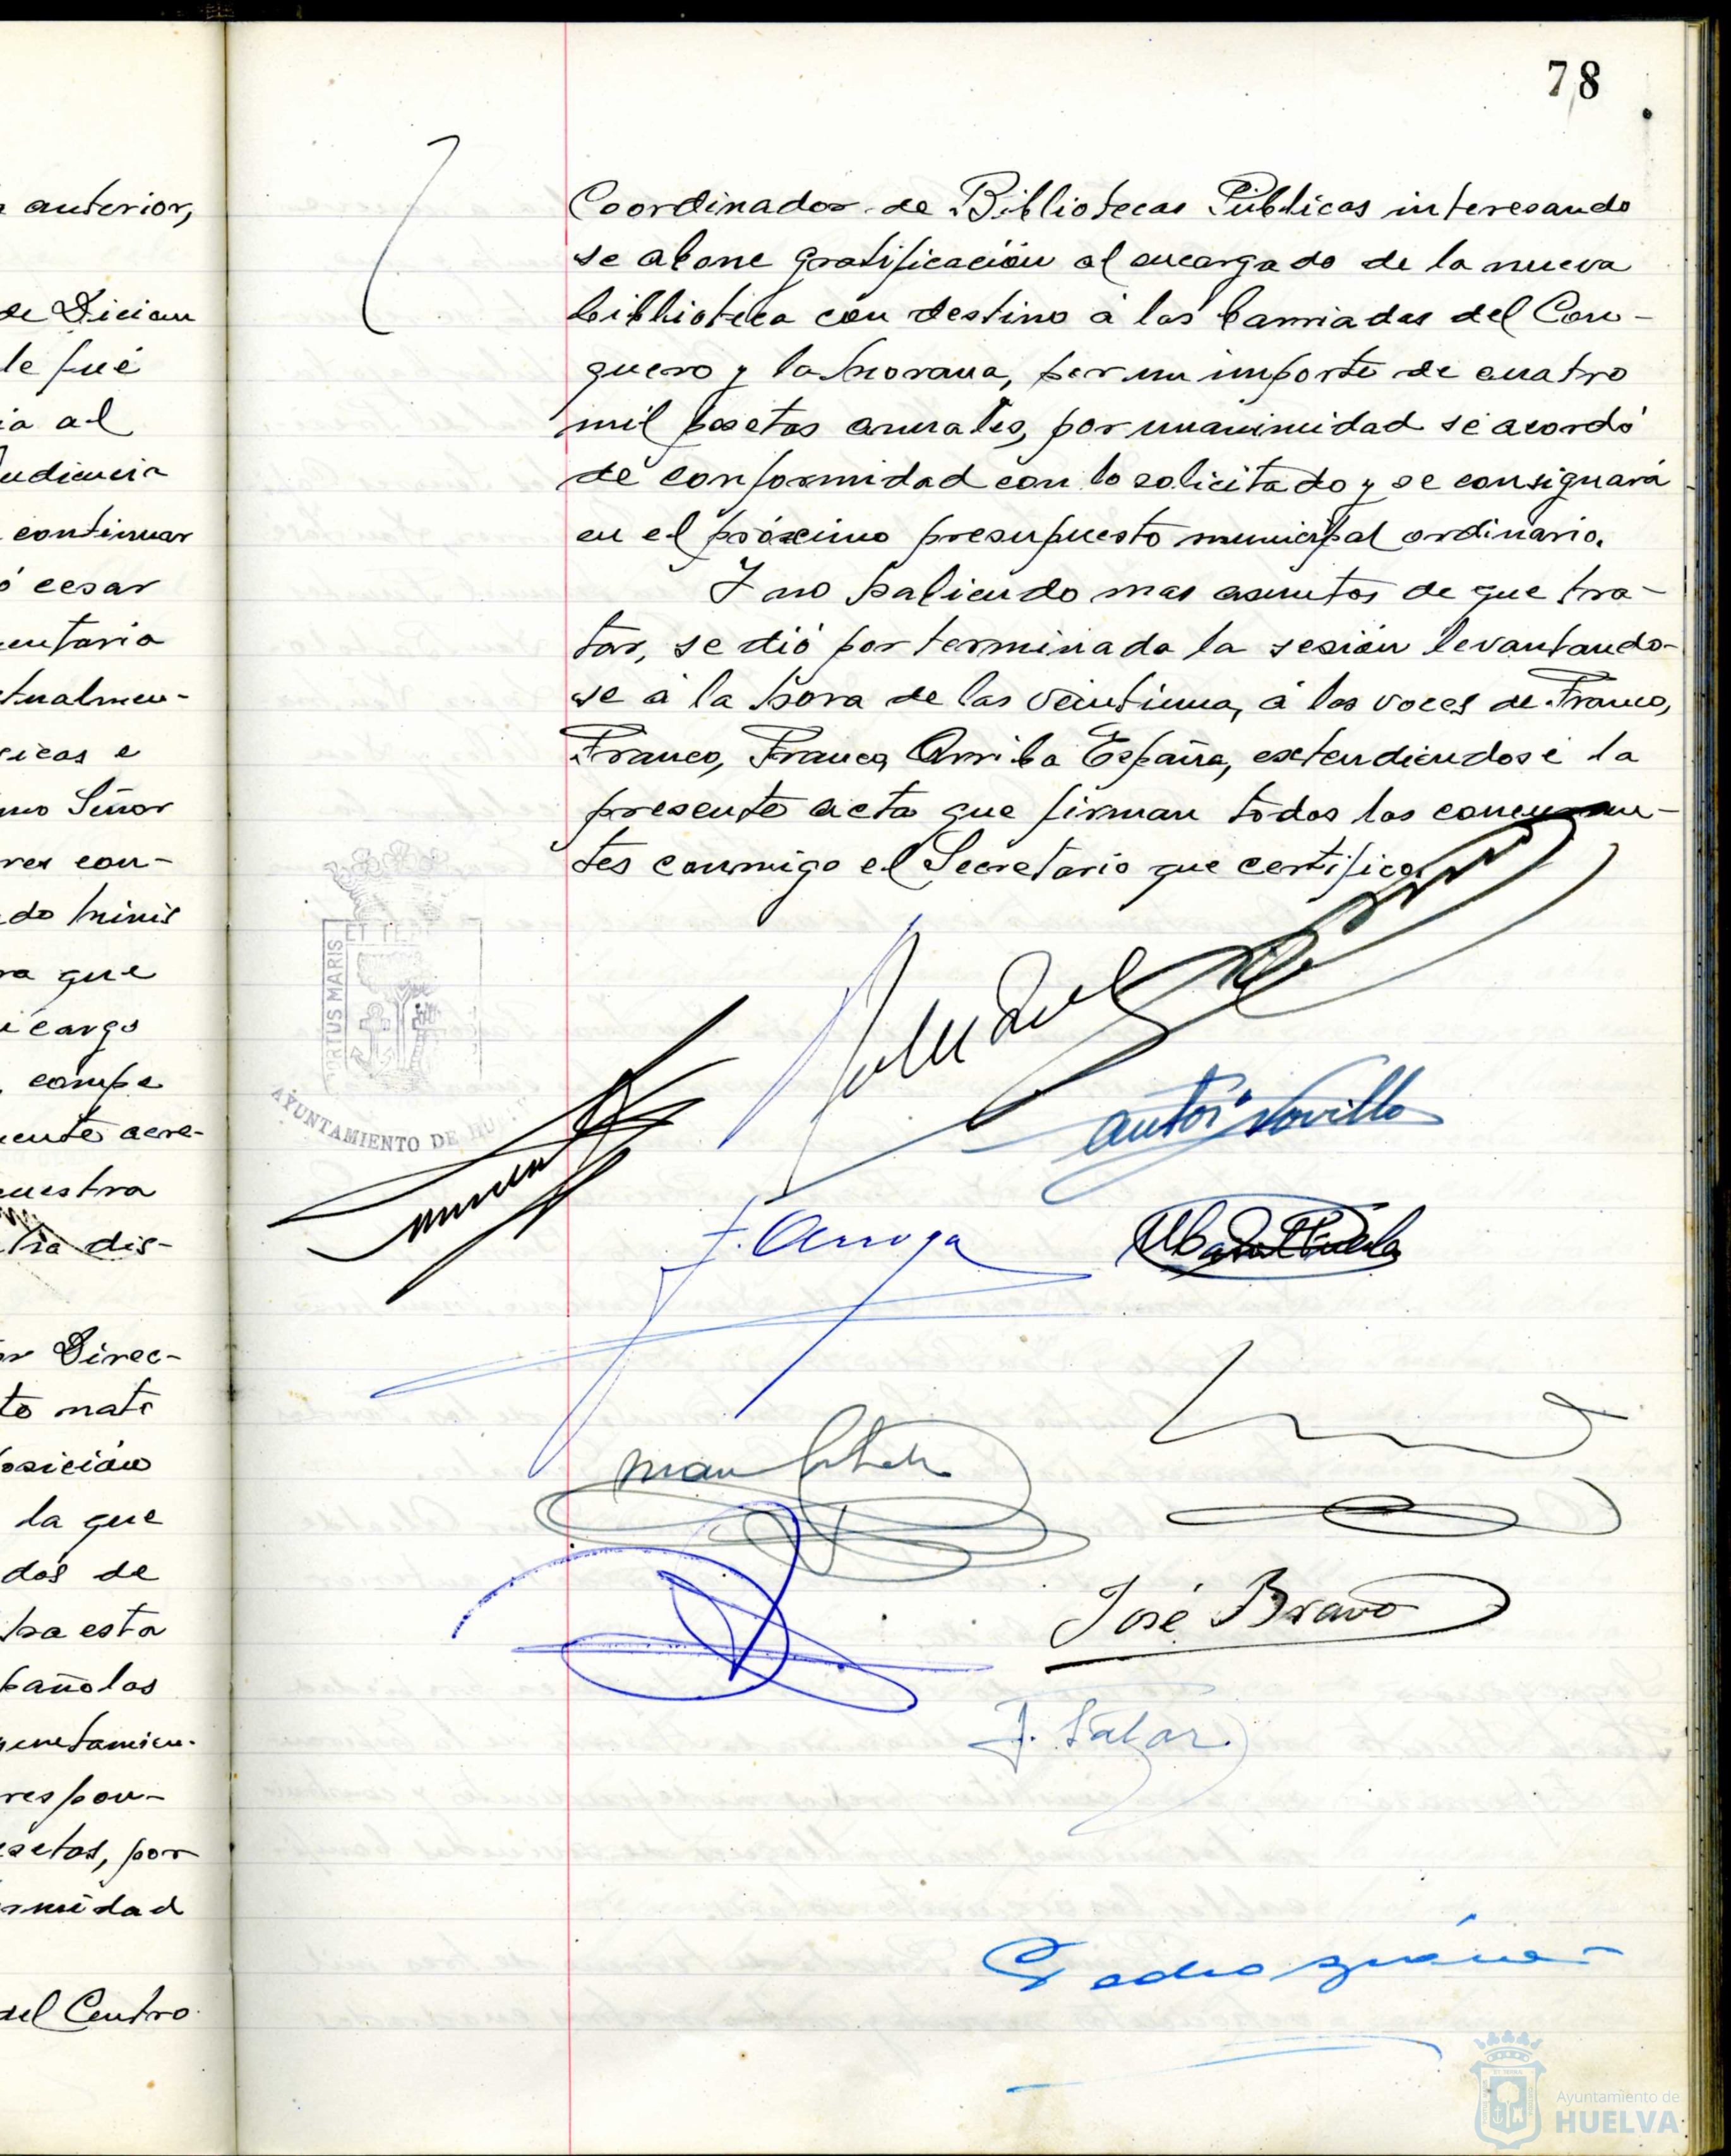 a anterior,
de Dicien
le fué
ia al
udiencia
continuar
ó cesar
mentaria
tualmen-
sicas e
mo Señor
res con-
do Minis
ra que
cargo
compe
mente acre-
uestra
dis-
or Direc-
to mate
osición
la que
dos de
ha esta
pañolas
mentamien-
respon-
esetas, por
rmidad
del Centro
78
Coordinador de Bibliotecas Públicas interesando
se abone gratificación al encargado de la nueva
biblioteca con destino a las barriadas del Con-
quero y la Morana, por un importe de cuatro
mil pesetas anuales, por unanimidad se acordó
de conformidad con lo solicitado y se consignará
en el próximo presupuesto municipal ordinario.
Y no habiendo mas asuntos de que tra-
tar, se dió por terminada la sesión levantando-
se a la hora de las veintiuna, a las voces de Franco,
Franco, Franco, Arriba España, extendiendose la
presente acta que firman todos los concurren-
tes conmigo el Secretario que certifico
PORTUS MARIS
ET TE
AYUNTAMIENTO DE HU
Novillo
J.
José Bravo
J. Salar
Pedro
Ayuntamiento de
HUELVA